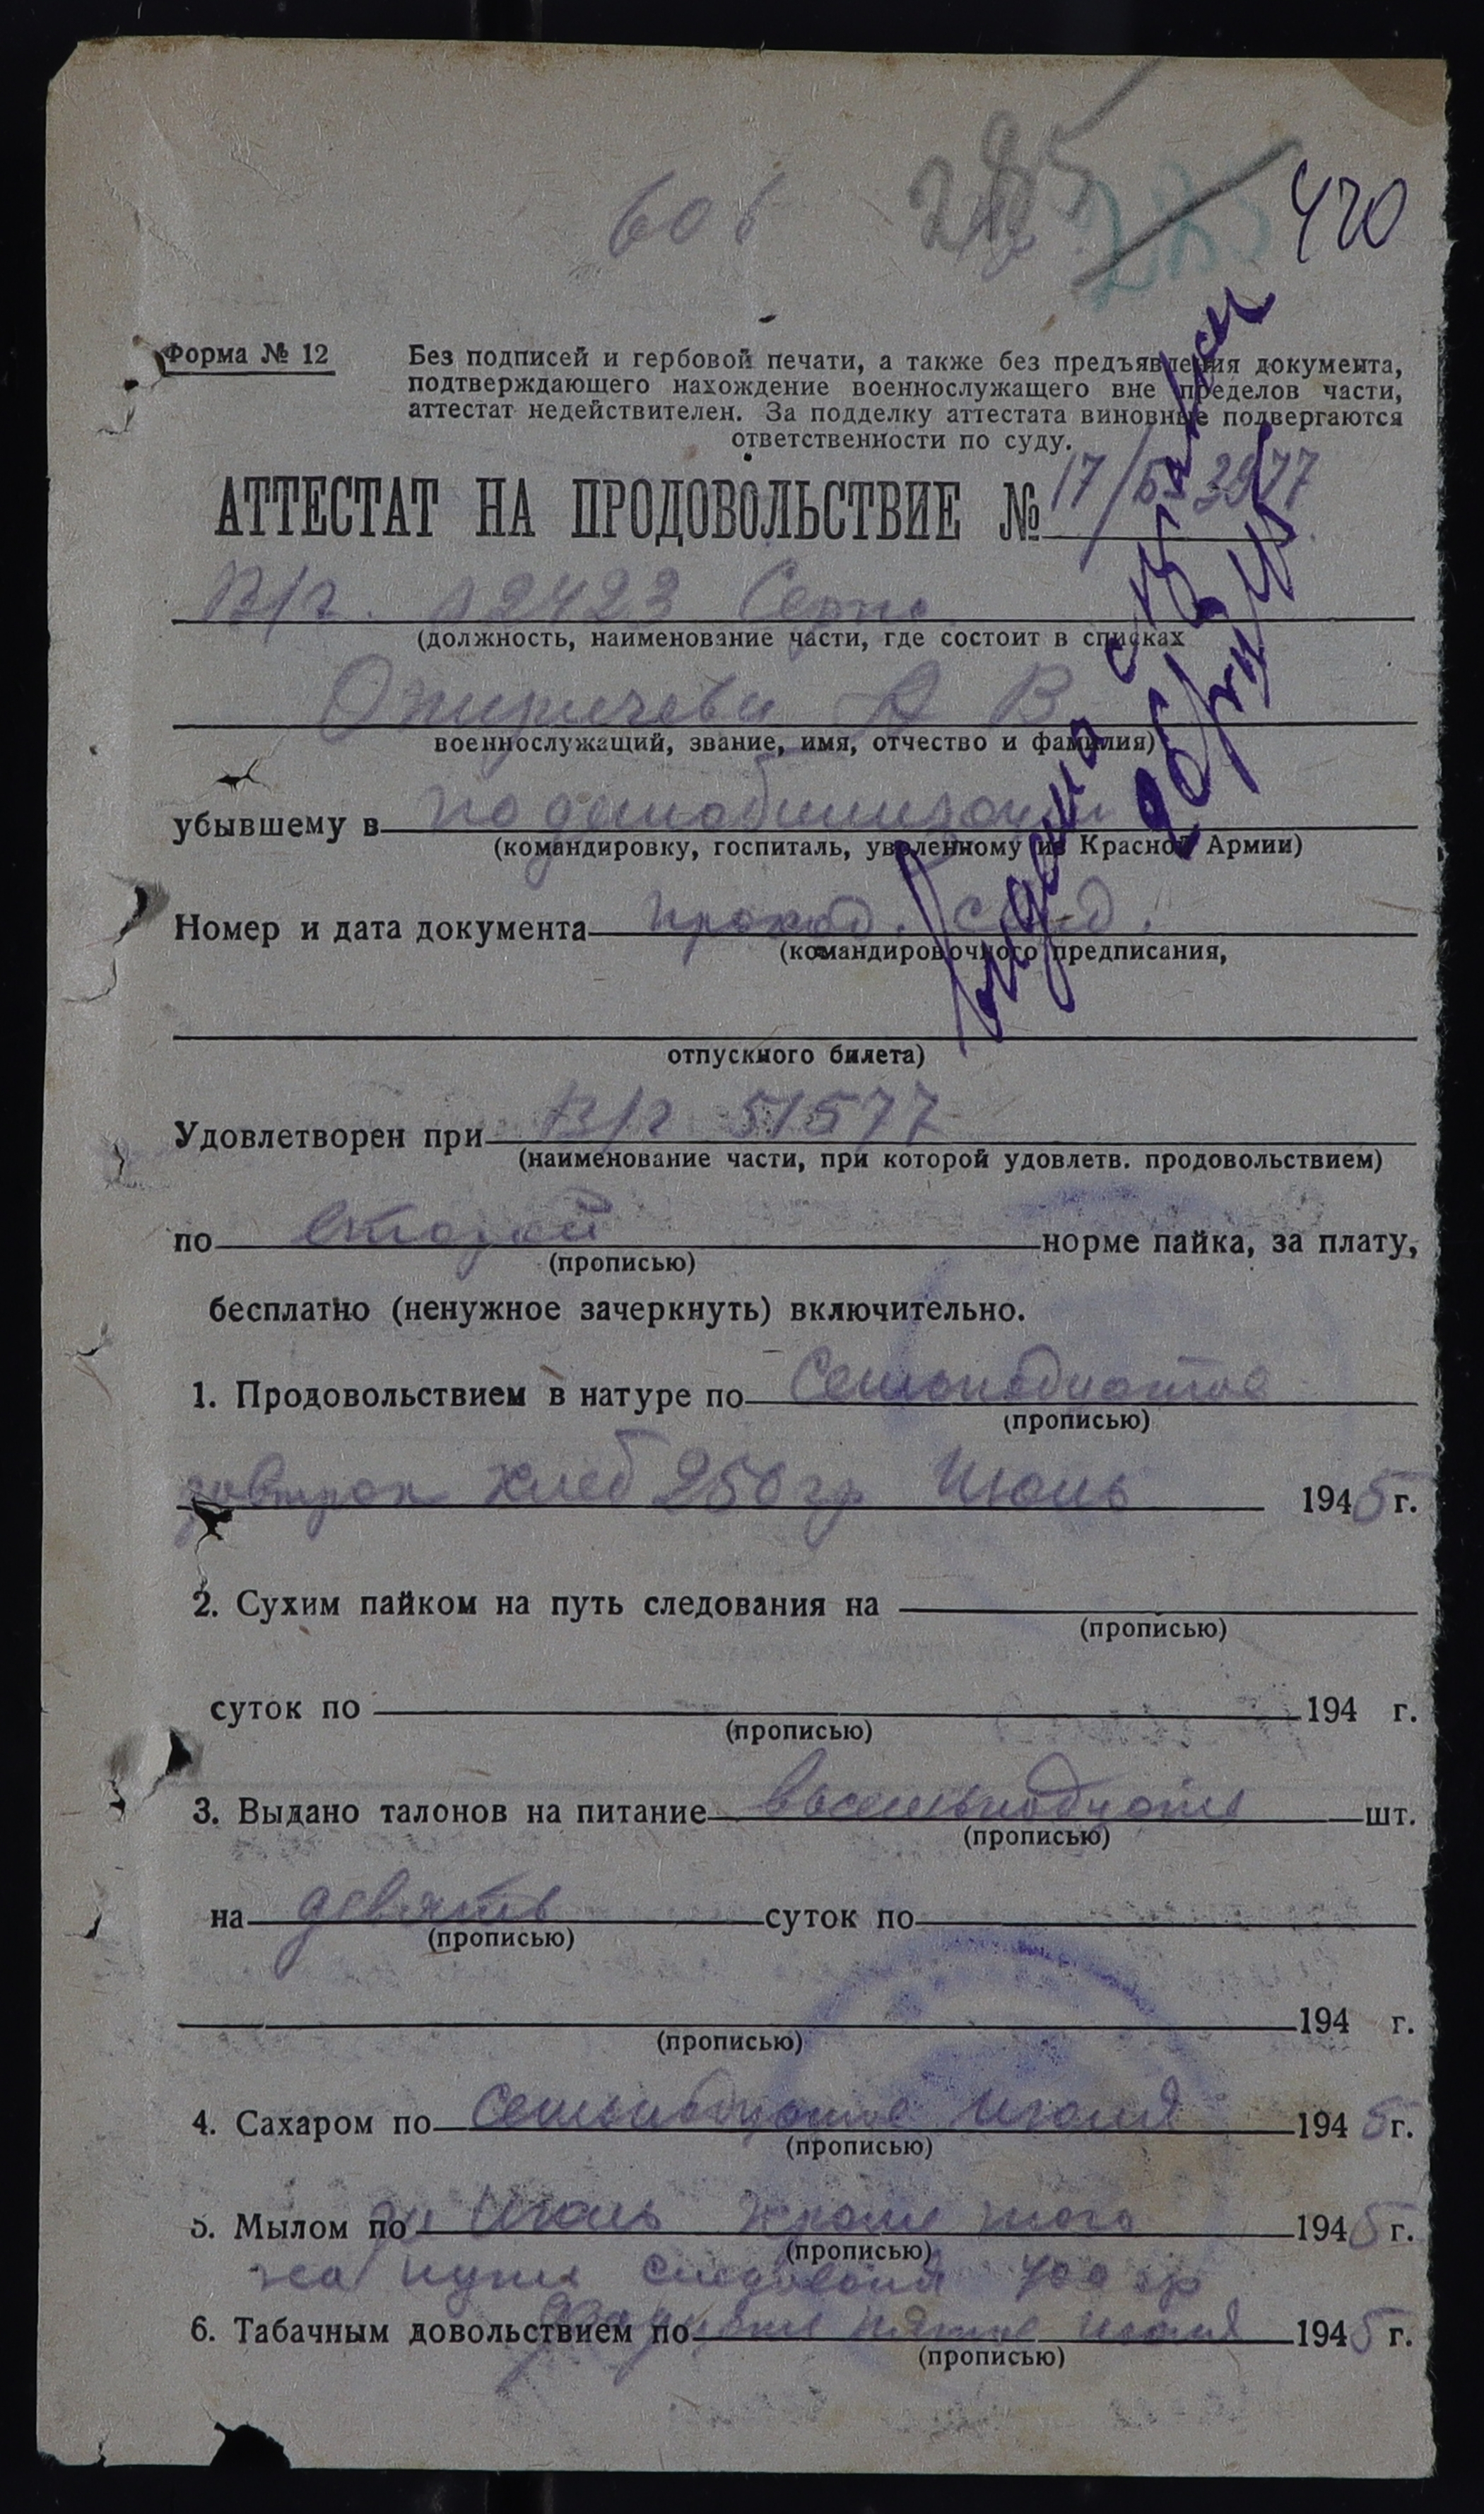 606 285 420
Форма № 12
Без подписей и гербовой печати, а также без предъявления документа,
подтверждающего нахождение военнослужащего вне пределов части,
аттестат недействителен. За подделку аттестата виновные подвергаются
ответственности по суду.
АТТЕСТАТ НА ПРОДОВОЛЬСТВИЕ № 17/
В/ч. 02423
(должность, наименование части, где состоит в списках
А В
военнослужащий, звание, имя, отчество и фамилия)
убывшему в по демобилизации
(командировку, госпиталь, уволенному из Красной Армии)
Номер и дата документа проход. свид.
(командировочного предписания,
отпускного билета)
Удовлетворен при В/ч 51577
(наименование части, при которой удовлетв. продовольствием)
по второй норме пайка, за плату,
(прописью)
бесплатно (ненужное зачеркнуть) включительно.
1. Продовольствием в натуре по Семнадцатое
(прописью)
завтрак хлеб 250 гр Июль 1945 г.
2. Сухим пайком на путь следования на
(прописью)
суток по 194 г.
(прописью)
3. Выдано талонов на питание восемьнадцать шт.
(прописью)
на девять суток по
(прописью)
194 г.
(прописью)
4. Сахаром по Семьнадцатое июля 1945 г.
(прописью)
5. Мылом по за Июль Кроме того 1945 г.
(прописью)
на пути 400 гр
6. Табачным довольствием по двадцать пятое Июля 1945 г.
(прописью)
Выдано